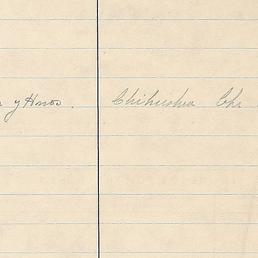 y Hnos. Chihuahua Chi